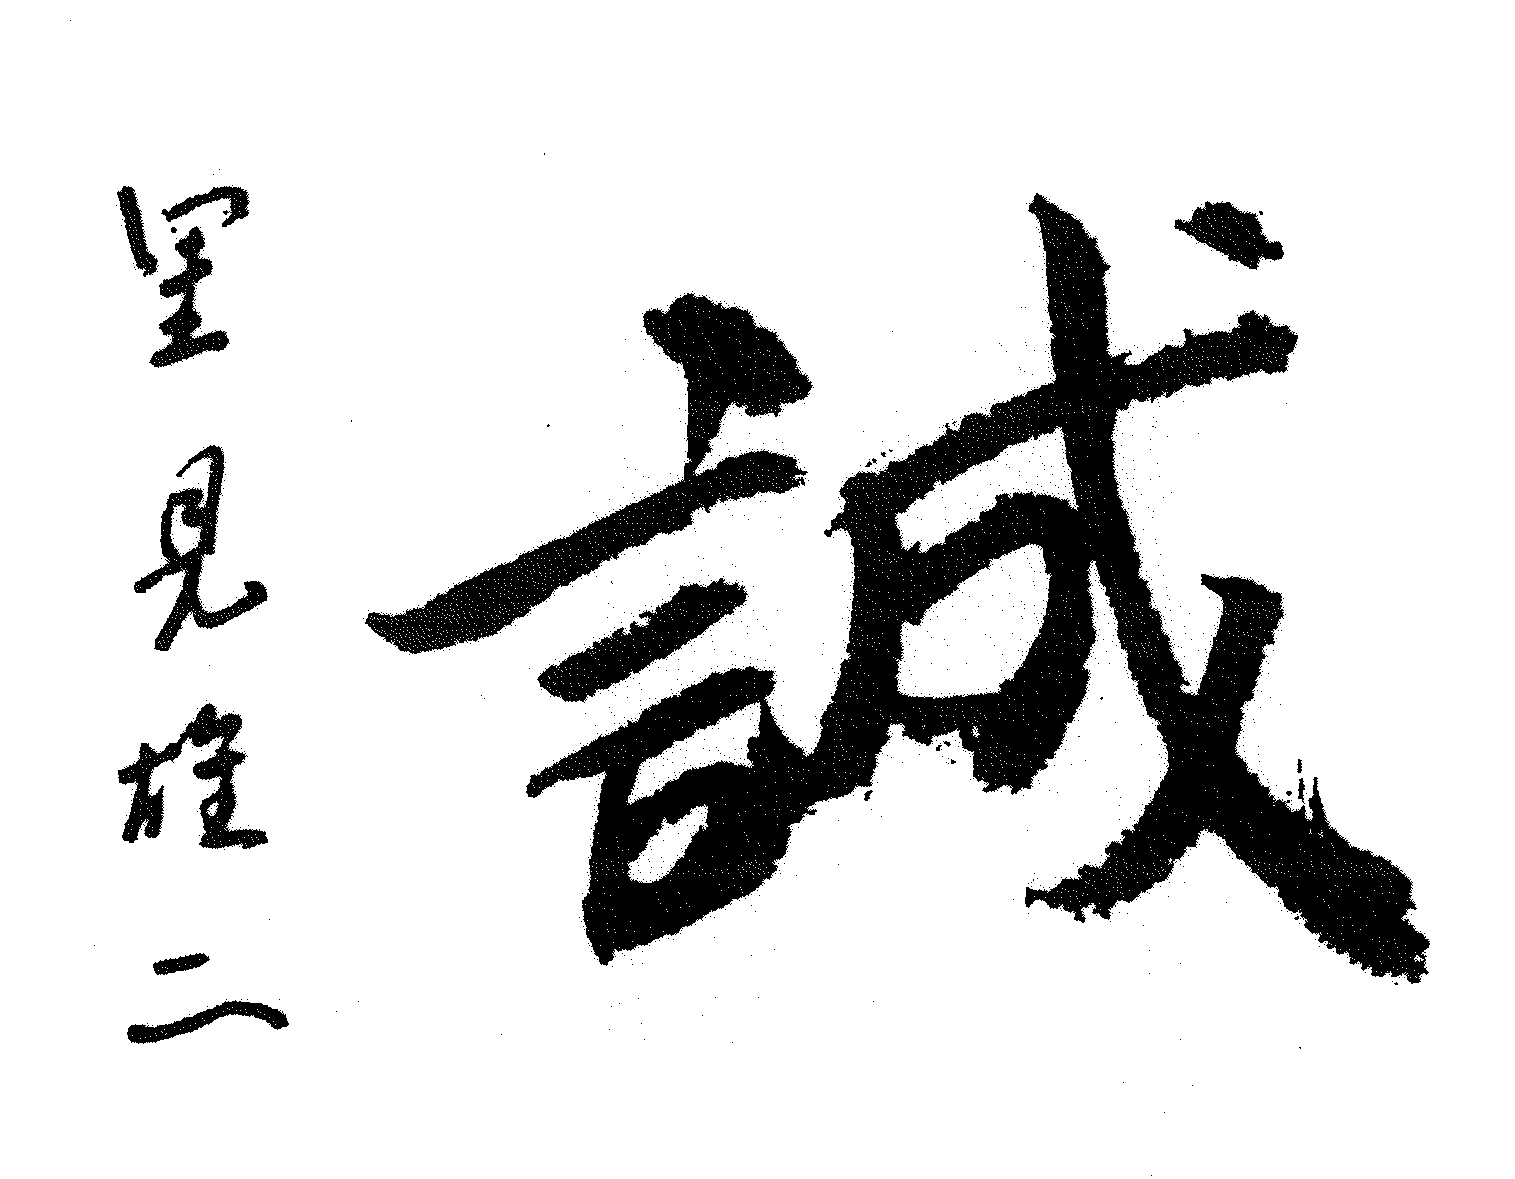 誠
里見雄二